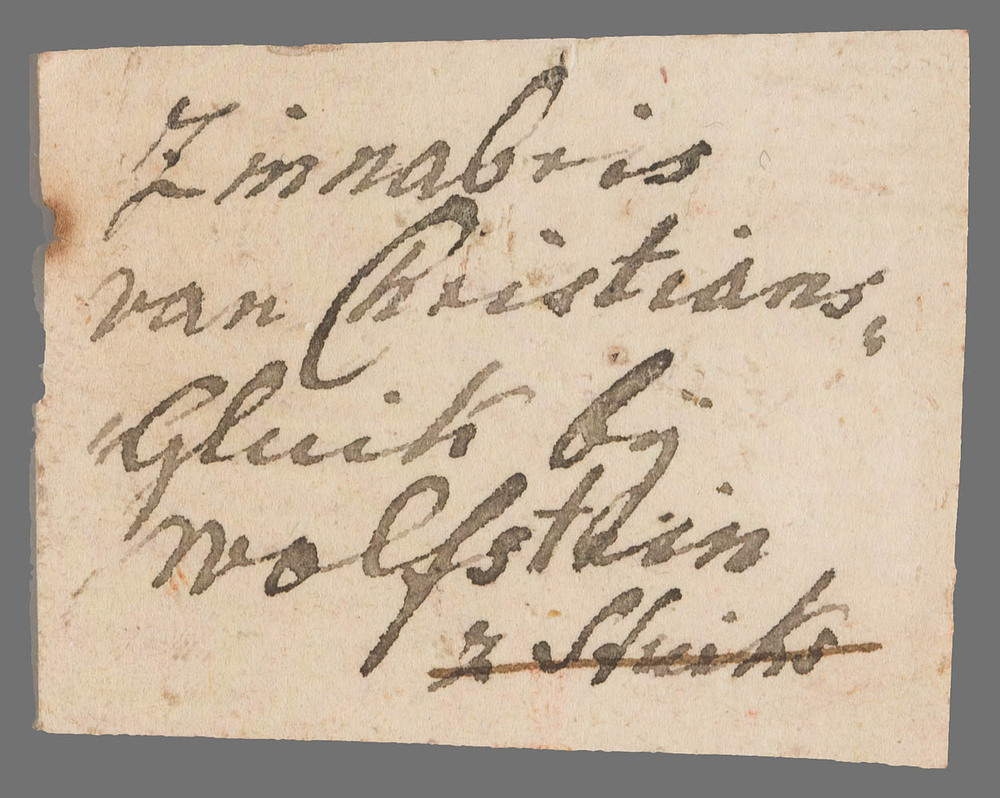 Zinnabris
van Christians,
Gluik bij
Wolfstein
2 Stuiks